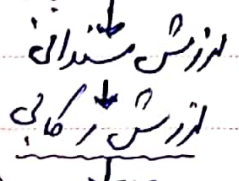 لرزش سندانی
↓
لرزش رکابی
↓